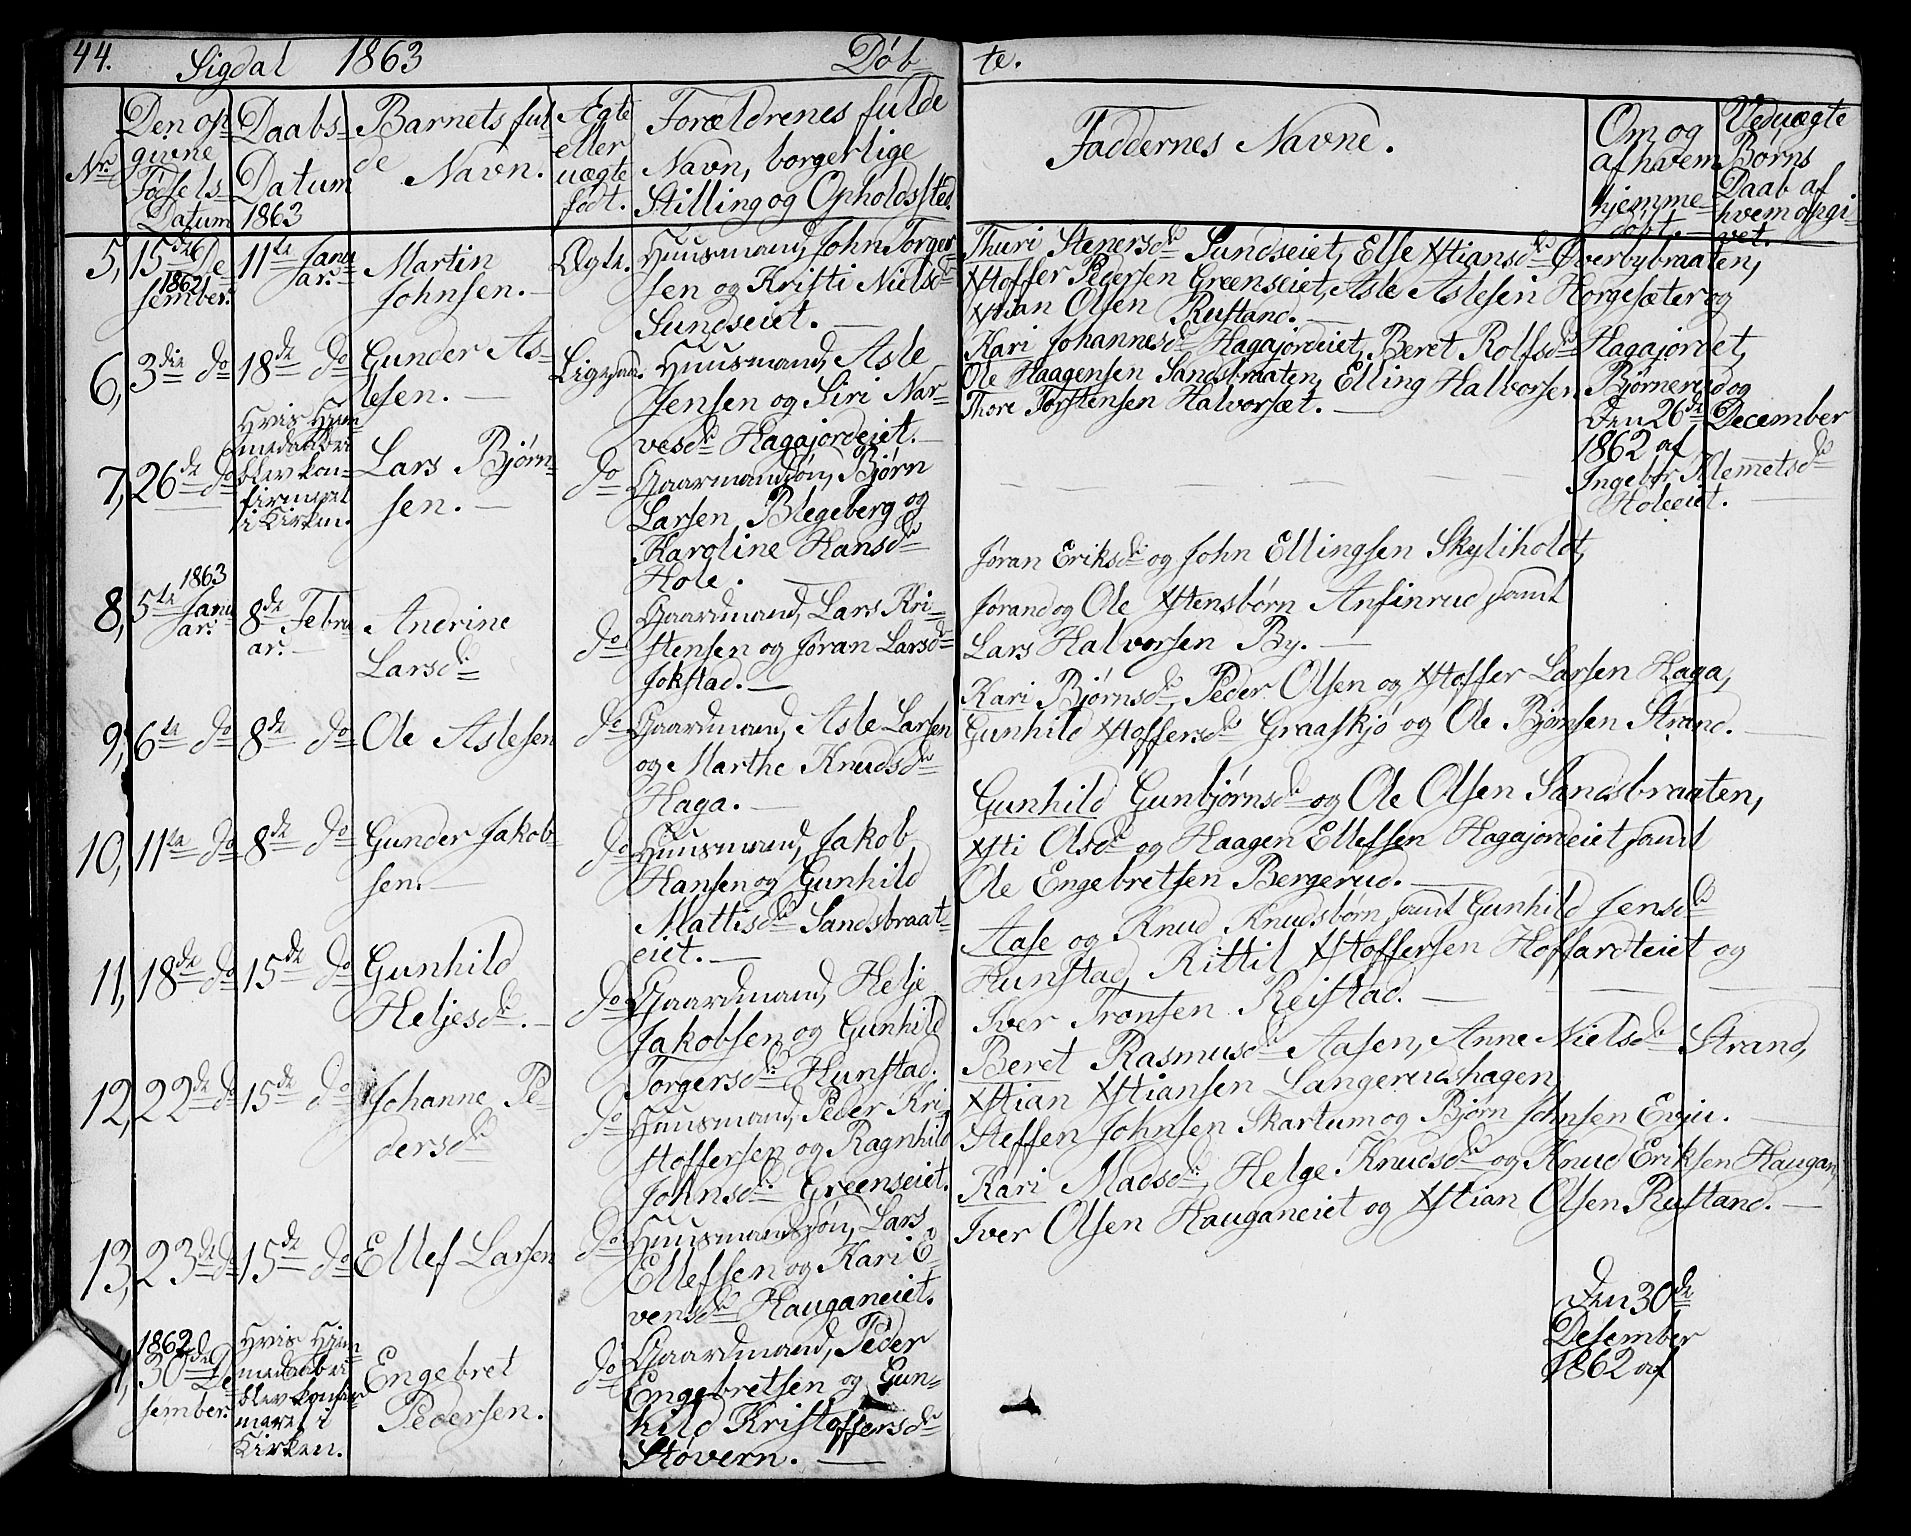 44. Sigdal 1863 Døb-te.
Nr.
Den op-
givne
Fødsels-
Datum
Daabs-
Datum
1863
Barnets ful-
de Navn.
Ægte
eller
uægte
født.
Forældrenes fulde
Navn, borgerlige
Stilling og Opholdssted.
Faddernes Navne.
Om og
af hvem
hjemme-
døbt.
Ved uægte
Børns
Daab af
hvem opgi-
vet.
5, 15de De-
1862
sember.
11te Janu-
ar.
Martin
Johnsen.
Ægte.
Huusmand, John Torger-
sen og Kristi Nielsdr
Sundseiet.
Thuri Stenersdr Sundseiet, Else Xstiansdr Øverbybraaten,
Xstoffer Pedersen Greenseiet, Asle Aslesen Horgesæter og
Xstian Olsen Rustand.
6, 3die do
18de do
Gunder As-
lesen.
Ligesaa.
Huusmand, Asle
Jensen og Siri Nar-
vesdr Hagajordeiet.
Kari Johannesdr Hagajordeiet, Beret Rolfsdr Hagajordet,
Ole Haagensen Sandsbraaten, Elling Halvorsen Bjørnerud og
Thore Torstensen Halvorsæt.
7, 26de do
Hvis Hjem-
medaab
blev kon-
firmeret
i Kirken.
Lars Bjørn-
sen.
do
Gaardmandsøn, Bjørn
Larsen Blegeberg og
Karoline Hansdr
Hole.
Den 26de December
1862 af
Ingebor Klemetsdr
Holeeiet.
8, 5te Janu-
1863
ar.
8de Febru-
ar.
Andrine
Larsdr
do
Gaardmand, Lars Kri-
stensen og Jøran Larsdr
Jokstad.
Jøran Eriksdr og John Ellingsen Skyliholdt,
Jørand og Ole Xstensbørn Anfinrud samt
Lars Halvorsen By.
9, 6te do
8de do
Ole Aslesen
do
Gaardmand, Asle Larsen
og Marthe Knudsdr
Haga.
Kari Bjørnsdr, Peder Olsen og Xstoffer Larsen Haga,
Gunhild Xstoffersdr Graaskjø og Ole Bjørnsen Strand.
10, 11te do
8de do
Gunder Jakob-
sen.
do
Huusmand, Jakob
Hansen og Gunhild
Mattisdr Sandsbraat-
eiet.
Gunhild Gunbjørnsdr og Ole Olsen Sandsbraaten,
Xsti Olsdr og Haagen Ellefsen Hagajordeiet samt
Ole Engebretsen Bergerud.
11, 18de do
15de do
Gunhild
Heljesdr.
do
Gaardmand, Helje
Jakobsen og Gunhild
Torgersdr Hunstad.
Aase og Knud Knudsbørn, samt Gunhild Jensdr
Hunstad, Kittil Xstoffersen Hoffardteiet og
Iver Tronsen Reistad.
12, 22de do
15de do
Johanne Pe-
dersdr
do
Huusmand, Peder Kri-
stoffersen og Ragnhild
Johnsdr Greenseiet.
Beret Rasmusdr Aasen, Anne Nielsdr Strand,
Xstian Xstiansen Langerudshagen,
Steffen Johnsen Skartum og Bjørn Johnsen Evju.
13, 23de do
15de do
Ellef Larsen
do
Huusmandsøn, Lars
Ellefsen og Kari E-
vensdr Hauganeiet.
Kari Madsdr, Helge Knudsdr og Knud Eriksen Haugan,
Iver Olsen Hauganeiet og Xstian Olsen Rustand.
1862
30de De-
sember.
Hvis Hjem-
medaab
blev konfir-
meret i
Kirken.
Engebret
Pedersen.
do
Gaardmand, Peder
Engebretsen og Gun-
hild Kristoffersdr
Støvern.
Den 30de
Desember
1862 af